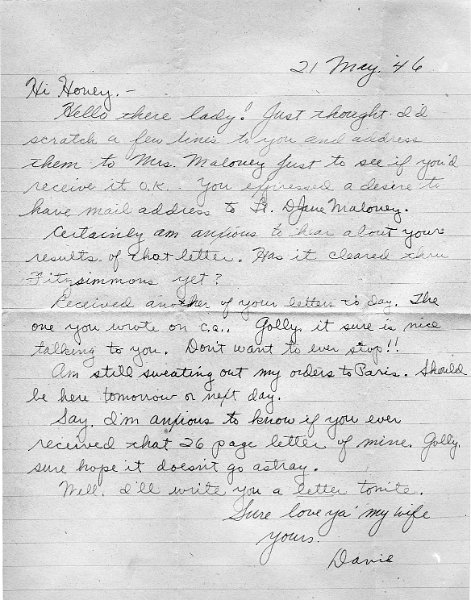 21 May. '46
Hi Honey.-
Hello there lady! Just thought I'd
scratch a few lines to you and address
them to Mrs. Maloney just to see if you'd
receive it O.K.. You expressed a desire to
have mail address to Lt. DJane Maloney.
Certainly am anxious to hear about your
results of that letter. Has it cleared thru
Fitzsimmons yet?
Received another of your letters to day. The
one you wrote on c.q.. Golly, it sure is nice
talking to you. Don't want to ever stop!!
Am still sweating out my orders to Paris. Should
be here tomorrow or next day.
Say, I'm anxious to know if you ever
received that 26 page letter of mine. Golly,
sure hope it doesn't go astray.
Well, I'll write you a letter tonite.
Sure love ya' my wife
yours.
Dave